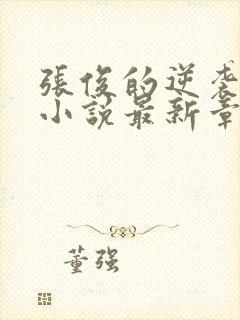 張俊的逆袭
小說最新章
董強